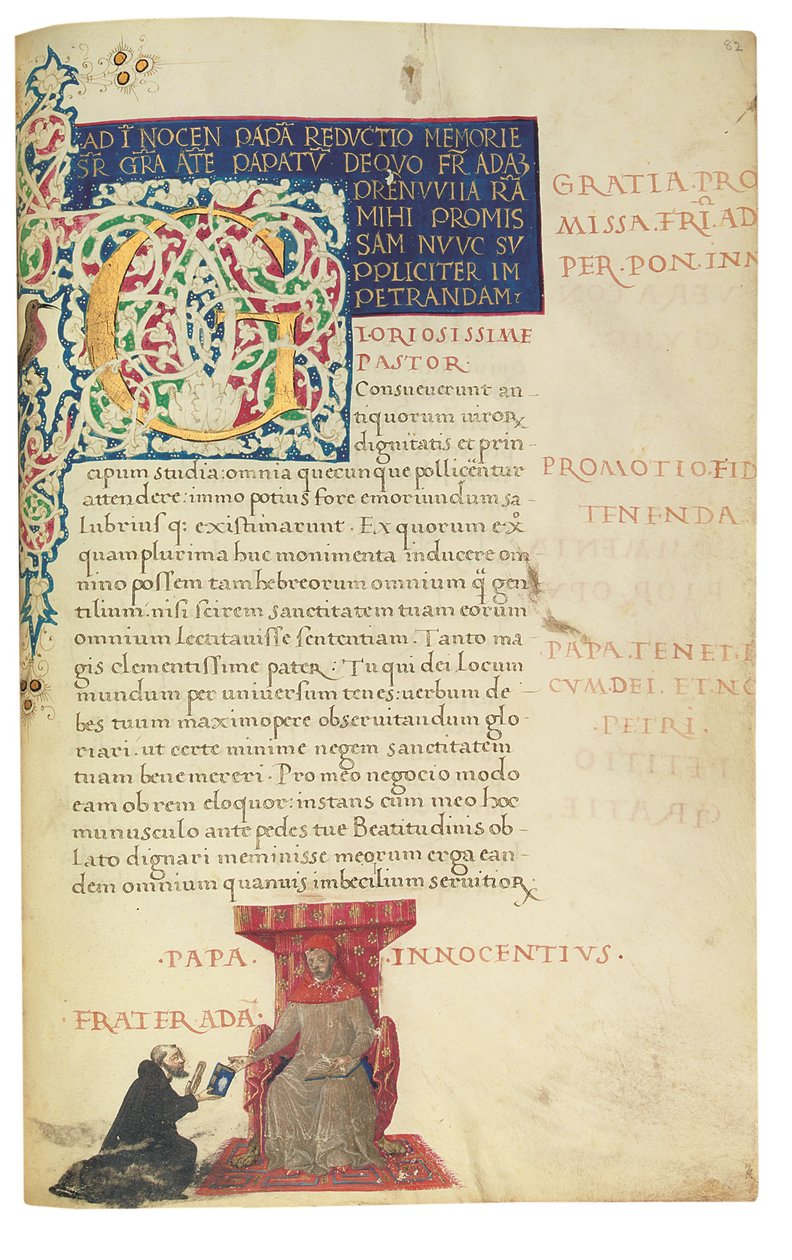 82
AD ĪNOCEN PAPĀ REDVCTIO MEMORIE
SR̄ GR̄A ĀTE PAPATV̄ DE QVO FR̄ ADAꝫ
PRENVVIIA R̄A
MIHI PROMIS
SAM NVVC SV
PPLICITER IM
PETRANDAM
GRATIA.PRO
MISSA.FRĪ.AD
PER.PON.INN
G
LORIOSISSIME
PASTOR.
Consueuerunt an
tiquorum uiroꝝ
dignitatis et prin-
cipum studia: omnia quecunque pollicentur
attendere: immo potius fore emoriundum sa-
lubrius q: existimarunt. Ex quorum ex̊
quamplurima huc monimenta inducere om
nino possem tam hebreorum omnium q̈ gen
tilium. nisi scirem sanctitatem tuam eorum
omnium lectitauisse sententiam. Tanto ma
gis clementissime pater: Tu qui dei locum
mundum per uniuersum tenes: uerbum de-
bes tuum maximopere obseruitandum glo-
riari. ut certe minime negem sanctitatem
tuam bene mereri. Pro meo negocio modo
eam ob rem eloquor: instans cum meo hoc
munusculo ante pedes tue Beatitudinis ob-
lato dignari meminisse meorum erga ean-
dem omnium quanuis imbecilium seruitioꝝ
PROMOTIO.FID
TENENDA
PAPA.TENET.
CVM.DEI.ET.NO
.PETRI.
.PAPA. .INNOCENTIVS.
.FRATER ADĀ.